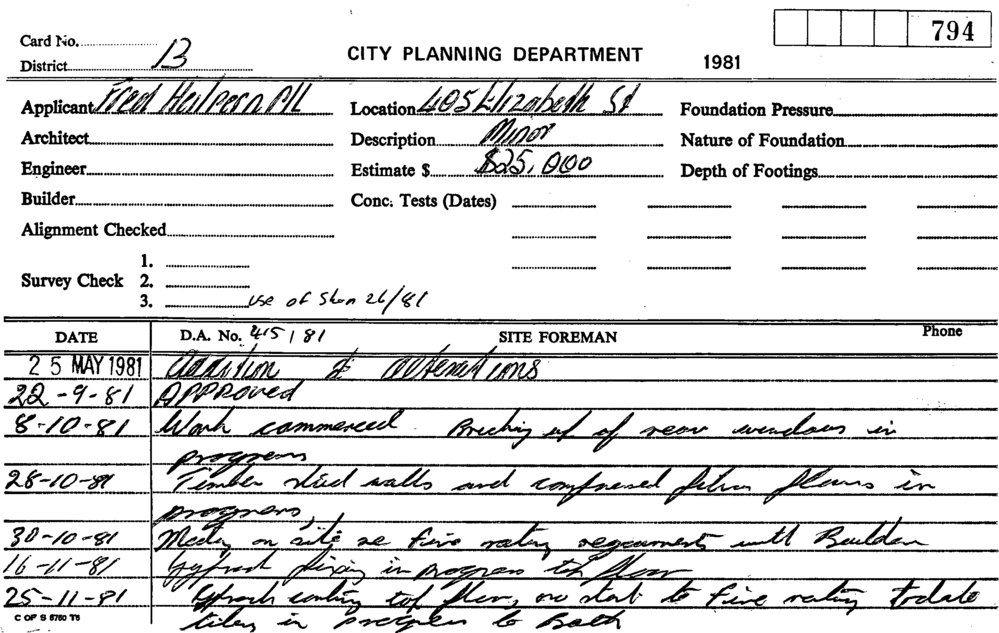 794
Card No.
District B
CITY PLANNING DEPARTMENT 1981
Applicant Fred Halpern P/L Location 405 Elizabeth St Foundation Pressure
Architect Description Minor Nature of Foundation
Engineer Estimate $ $25,000 Depth of Footings
Builder Conc. Tests (Dates)
Alignment Checked
1.
Survey Check 2.
3. use of 26/81
DATE D.A. No. 415/81 SITE FOREMAN Phone
25 MAY 1981 addition & alterations
22-9-81 APPROVED
8-10-81 Work commenced Bricking up of rear windows in
progress
28-10-81 Timber stud walls and compressed fibro floors in
progress,
30-10-81 Meeting on site re fire rating requirements with Builder
16-11-81 Gyprock fixing in progress floor
25-11-81 Gyprock top floor, no start to fire rating to date
C OF S 5760 T6 tiling in progress to Bath